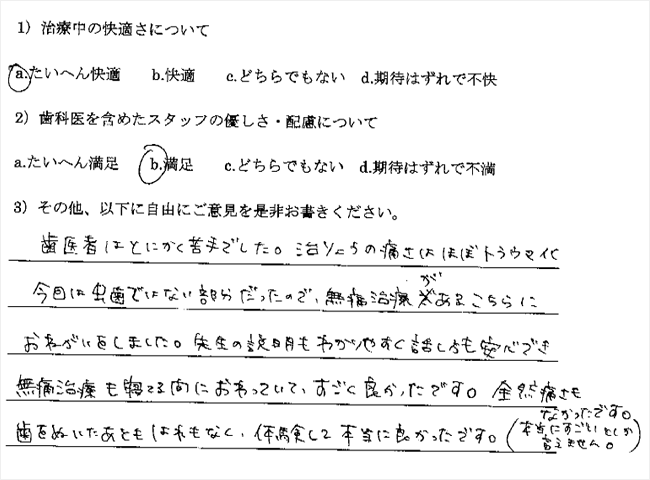 1）治療中の快適さについて
a.たいへん快適　b.快適　c.どちらでもない　d.期待はずれで不快
2）歯科医を含めたスタッフの優しさ・配慮について
a.たいへん満足　b.満足　c.どちらでもない　d.期待はずれで不満
3）その他、以下に自由にご意見を是非お書きください。
歯医者はとにかく苦手でした。治りょうの痛さはほぼトラウマ化
今回は虫歯ではない部分だったので、無痛治療があるこちらに
おねがいをしました。先生の説明もわかりやすく話し方も安心でき
無痛治療も寝てる間におわっていて、すごく良かったです。全然痛さも
なかったです。
歯をぬいたあともはれもなく、体験して本当に良かったです。（本当にすごいとしか
言えません。）